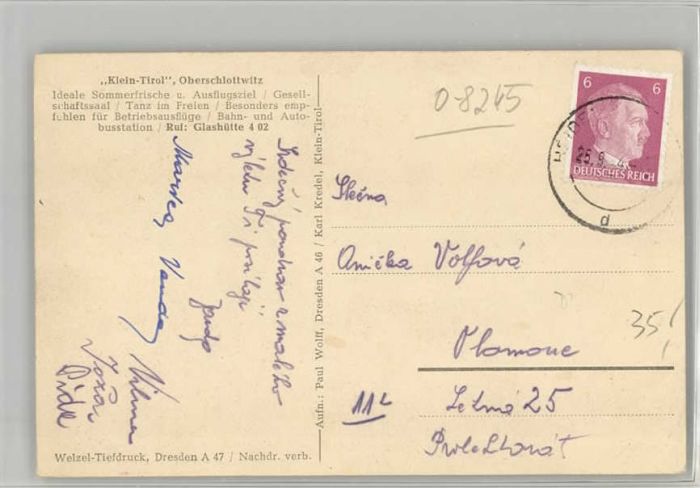 „Klein-Tirol", Oberschlottwitz
Ideale Sommerfrische u. Ausflugsziel / Gesell-
schaftssaal / Tanz im Freien / Besonders emp-
fohlen für Betriebsausflüge / Bahn- und Auto-
busstation / Ruf: Glashütte 4 02
Srdečný pozdrav z malého
výletu Ti posílají
Jenda
Vanda
Vilma
Welzel-Tiefdruck, Dresden A 47 / Nachdr. verb.
Aufn.: Paul Wolff, Dresden A 46 / Karl Kredel, Klein-Tirol
0-8245
6 6
DEUTSCHES REICH
HEIDE
25.9.4
d
Slečna
Anička Volfová
Olomouc
Letná 25
Protektorát
11L
35!